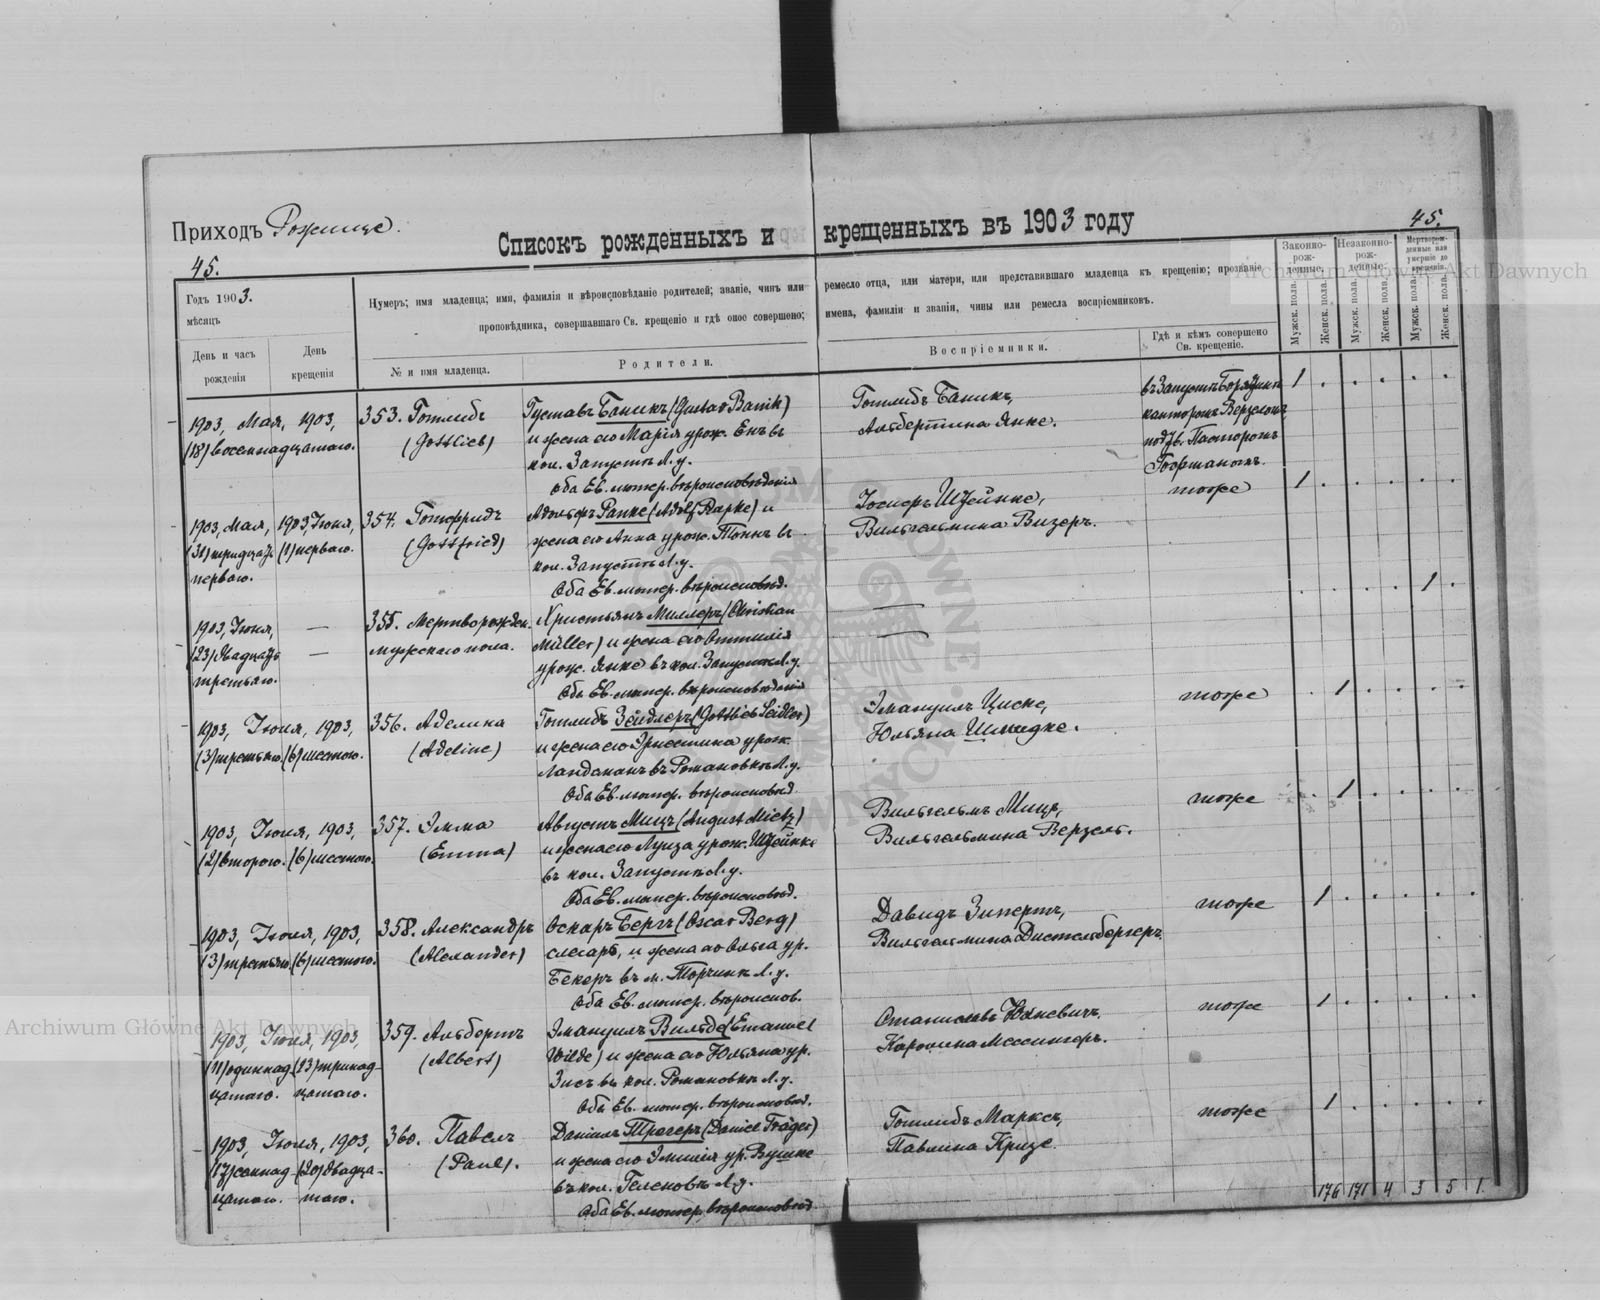 Приходъ Рожище.
Списокъ рожденныхъ и крещенныхъ въ 1903 году
45.
45.
Годъ 1903.
мѣсяцъ
День и часъ рожденія
День крещенія
Нумеръ; имя младенца; имя, фамилія и вѣроисповѣданіе родителей; званіе, чинъ или ремесло отца, или матери, или представившаго младенца къ крещенію; прозваніе
проповѣдника, совершавшаго Св. крещеніе и гдѣ оное совершено; имена, фамиліи и званіи, чины или ремесла воспріемниковъ.
№ и имя младенца.
Родители.
Воспріемники.
Гдѣ и кѣмъ совершено Св. крещеніе.
Законно-рож-денные.
Незаконно-рож-денные.
Мертворож-денные или умершіе до крещенія.
Мужск. пола.
Женск. пола.
Мужск. пола.
Женск. пола.
Мужск. пола.
Женск. пола.
1903, Мая, 1903,
(18) восемнадцатаго.
353. Готлибъ
(Gottlieb)
Густавъ Баникъ (Gustav Banik)
и жена его Марія урож. Енъ въ
кол. Запустъ Л. у.
Оба Ев. лютер. вѣроисповѣданія
Готлибъ Баникъ,
Альбертина Янке.
въ Запустъ
канторомъ
Пасторомъ
1
1903, Мая, 1903, Іюня,
(31) тридцать (1) перваго.
перваго.
354. Готфридъ
(Gottfried)
Адольфъ Рапке (Adolf Rapke) и
жена его Анна урож. Тоннъ въ
кол. Запустъ Л. у.
Оба Ев. лютер. вѣроисповѣд.
Іосифъ Штейнке,
Вильгельмина Визеръ.
тоже
1
1903, Іюня, —
(23) двадцать —
третьяго.
355. Мертворожден.
мужскаго пола.
Христьянъ Миллеръ (Christian
Müller) и жена его Оттилія
урож. Янке въ кол. Запустъ Л. у.
Оба Ев. лютер. вѣроисповѣданія
1
1903, Іюня, 1903,
(3) третьяго. (6) шестого.
356. Аделина
(Adeline)
Готлибъ Зейдлеръ (Gottlieb Seidler)
и жена его Эрнестина урож.
въ Романовкѣ Л. у.
Оба Ев. лютер. вѣроисповѣд.
Эмануилъ Циске,
Юльяна Шмидке.
тоже
1
1903, Іюня, 1903,
(2) второго. (6) шестого.
357. Эмма
(Emma)
Августъ Мицъ (August Mietz)
и жена его Луиза урож. Штейнке
въ кол. Запустъ Л. у.
Оба Ев. лютер. вѣроисповѣд.
Вильгельмъ Мицъ,
Вильгельмина Верзель.
тоже
1
1903, Іюня, 1903,
(3) третьяго. (6) шестого.
358. Александръ
(Alexander)
Оскаръ Бергъ (Oscar Berg)
слесарь, и жена его Ольга ур.
Бекеръ въ м. Торчинъ Л. у.
Оба Ев. лютер. вѣроиспов.
Давидъ Зипертъ,
Вильгельмина Дистельбергеръ.
тоже
1
1903, Іюня, 1903,
(11) одиннад- (13) тринад-
цатаго. цатаго.
359. Альбертъ
(Albert)
Эмануилъ Вильде (Emanuel
Wilde) и жена его Юльяна ур.
Зисъ въ кол. Романовкѣ Л. у.
Оба Ев. лютер. вѣроисповѣд.
Станиславъ Юхневичъ,
Каролина Мессингеръ.
тоже
1
1903, Іюня, 1903,
(17) семнад- (20) двадца-
цатаго. таго.
360. Павелъ
(Paul).
Даніилъ Трегеръ (Daniel Träger)
и жена его Эмилія ур. Вушке
въ кол. Геленовъ Л. у.
Оба Ев. лютер. вѣроисповѣд.
Готлибъ Марксъ,
Павлина Кризе.
тоже
1
176 171 4 3 5 1.
Archiwum Główne Akt Dawnych
Archiwum Główne Akt Dawnych